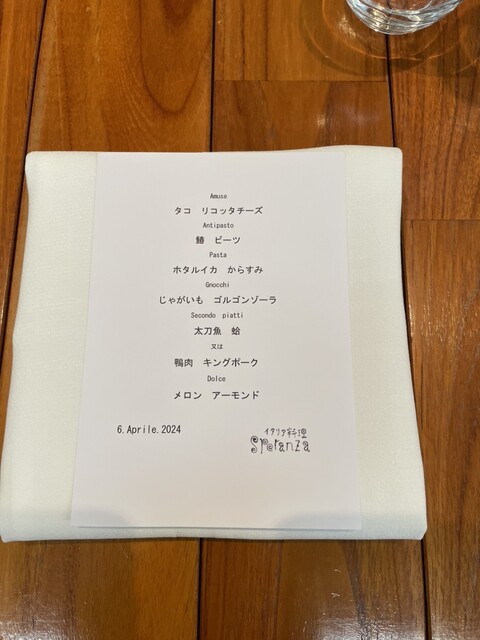 Amuse
タコ　リコッタチーズ
Antipasto
鰆　ビーツ
Pasta
ホタルイカ　からすみ
Gnocchi
じゃがいも　ゴルゴンゾーラ
Secondo piatti
太刀魚　蛤
又は
鴨肉　キングポーク
Dolce
メロン　アーモンド
6.Aprile.2024
イタリア料理
Speranza